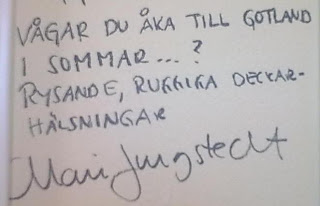 VÅGAR DU ÅKA TILL GOTLAND
I SOMMAR...?
RYSANDE, RUGGIGA DECKAR-
HÄLSNINGAR
Mari Jungstedt